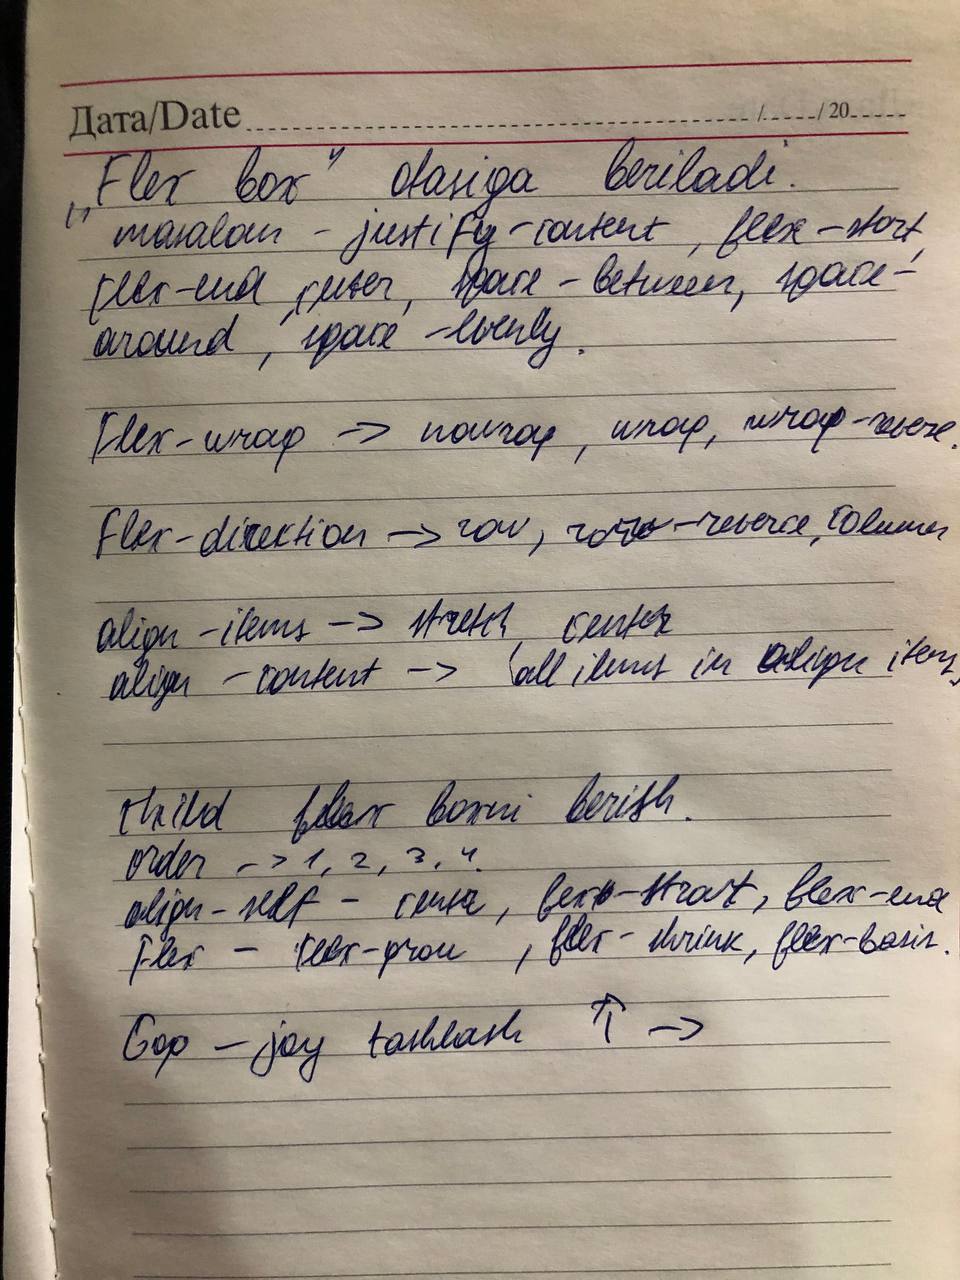 Дата/Date ........ /...../20.....
„Flex box" otasiga beriladi.
masalan - justify-content, flex-start,
flex-end, center, space-between, space-
around, space-evenly.
Flex-wrap -> nowrap, wrap, wrap-reverse.
Flex-direction -> row, row-reverse, column
align-items -> stretch, center
align-content -> all items in align items,
child flex boxni berish.
order -> 1, 2, 3, 4.
align-self - center, flex-start, flex-end
Flex - flex-grow, flex-shrink, flex-basis.
Gap - joy tashlash ↑ ->